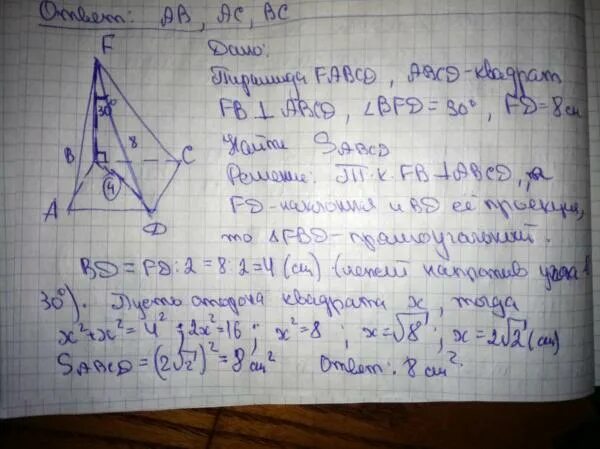 Ответ: AB, AC, BC
Дано:
Пирамида FABCD, ABCD-квадрат
FB ⊥ ABCD, ∠BFD = 30°, FD = 8 см
Найти S ABCD
Решение: Т.к. FB ⊥ ABCD, а
FD-наклонная и BD её проекция,
то ΔFBD-прямоугольный.
F
30°
8
B
C
4
A
D
BD = FD : 2 = 8 : 2 = 4 (см) (лежит напротив угла
30°). Пусть сторона квадрата x, тогда
x² + x² = 4² ; 2x² = 16 ; x² = 8 ; x = √8 ; x = 2√2 (см)
S ABCD = (2√2)² = 8 см² Ответ: 8 см².